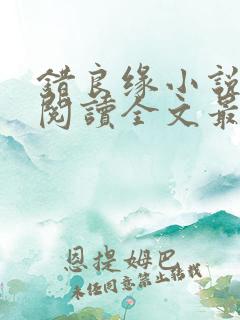 錯良缘小說
閱讀全文最
恩提姆巴
未经同意禁止转载